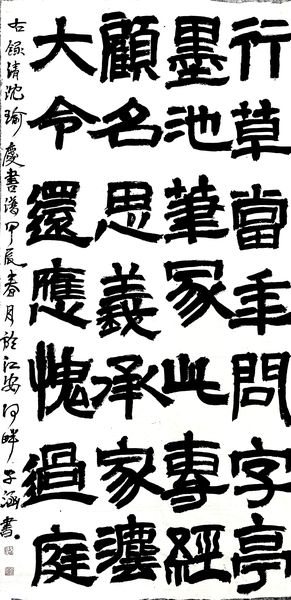 行草當年問字亭
墨池筆冢此專經
顧名思義承家瀍
大令還應愧過庭
右錄清沈瑜慶書譜甲辰春月於江安河畔子涵書